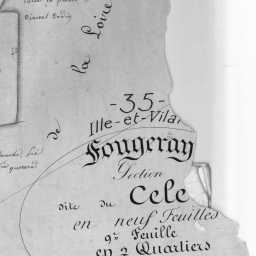 la Loire
de
-35-
Ille-et-Vilai
Fougeray
Section
dite du Cele
en neuf Feuilles
9e Feuille
en 2 Quartiers